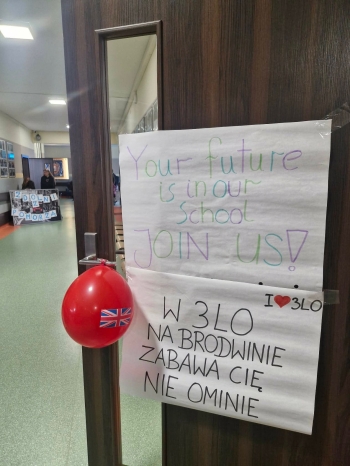 Your future
is in our
School
JOIN US!
I ❤ 3LO
W 3LO
NA BRODWINIE
ZABAWA CIĘ
NIE OMINIE